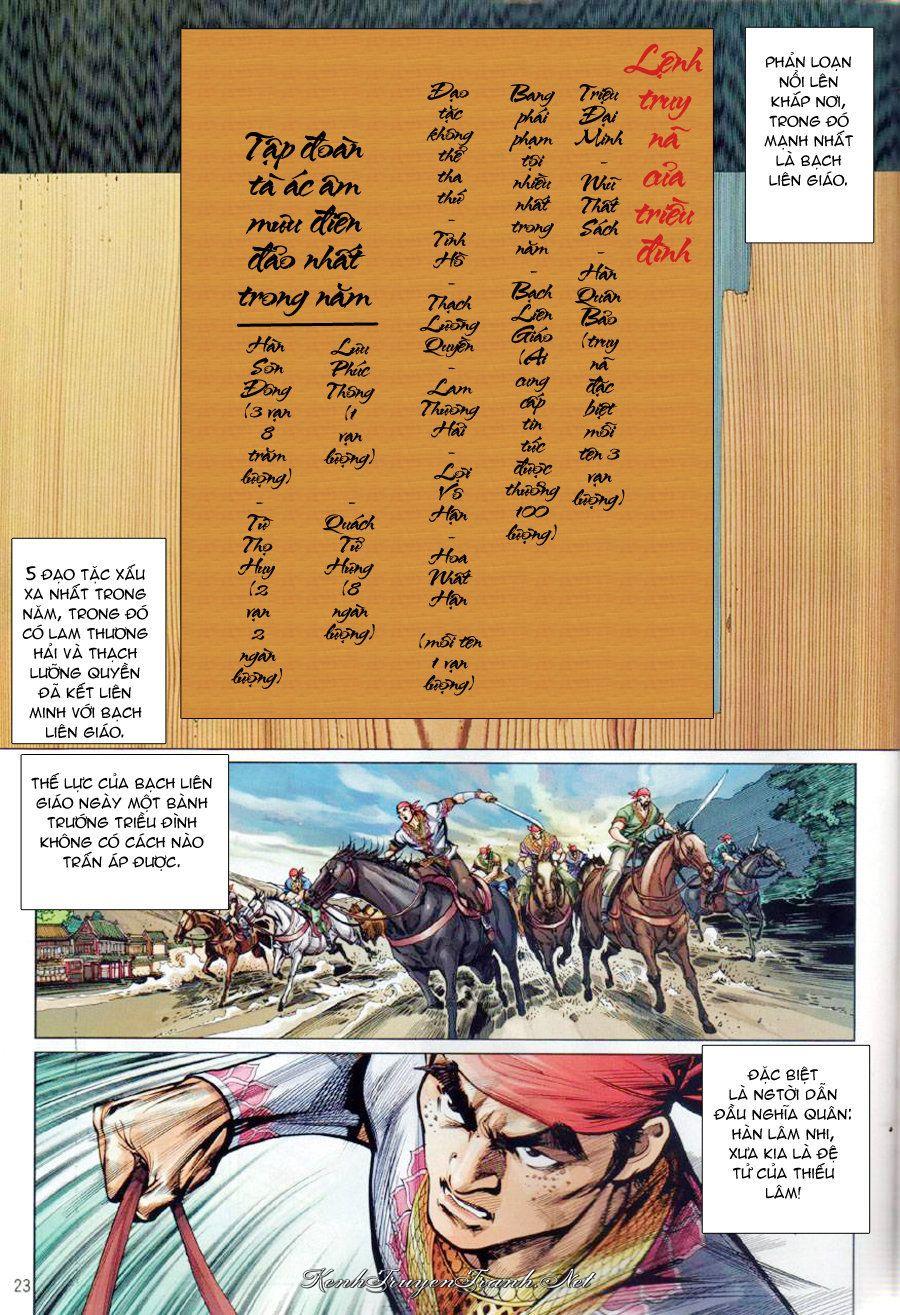 PHẢN LOẠN
NỔI LÊN
KHẮP NƠI,
TRONG ĐÓ
MẠNH NHẤT
LÀ BẠCH
LIÊN GIÁO.
Lệnh
truy
nã
của
triều
đình
Triệu
Đại
Minh
-
Vũ
Thất
Sách
-
Hàn
Quân
Bảo
(truy
nã
đặc
biệt
mỗi
tên 3
vạn
lượng)
Bang
phái
phạm
tội
nhiều
nhất
trong
năm
-
Bạch
Liên
Giáo
(Ai
cung
cấp
tin
tức
được
thưởng
100
lượng)
Đạo
tặc
không
thể
tha
thứ
-
Tinh
Hồ
-
Thạch
Lưỡng
Quyền
-
Lam
Thương
Hải
-
Lợi
Vô
Hạn
-
Hoa
Nhất
Hạn
(mỗi tên
1 vạn
lượng)
Tập đoàn
tà ác âm
mưu điên
đảo nhất
trong năm
Lưu
Phúc
Thông
(1
vạn
lượng)
-
Quách
Tử
Hưng
(8
ngàn
lượng)
Hàn
Sơn
Đồng
(3 vạn
8
trăm
lượng)
-
Từ
Thọ
Huy
(2
vạn
2
ngàn
lượng)
5 ĐẠO TẶC XẤU
XA NHẤT TRONG
NĂM, TRONG ĐÓ
CÓ LAM THƯƠNG
HẢI VÀ THẠCH
LƯỠNG QUYỀN
ĐÃ KẾT LIÊN
MINH VỚI BẠCH
LIÊN GIÁO.
THẾ LỰC CỦA BẠCH LIÊN
GIÁO NGÀY MỘT BÀNH
TRƯỚNG TRIỀU ĐÌNH
KHÔNG CÓ CÁCH NÀO
TRẤN ÁP ĐƯỢC.
ĐẶC BIỆT
LÀ NGTỜI DẪN
ĐẦU NGHĨA QUÂN:
HÀN LÂM NHI,
XƯA KIA LÀ ĐỆ
TỬ CỦA THIẾU
LÂM!
23
KenhTruyenTranh.Net